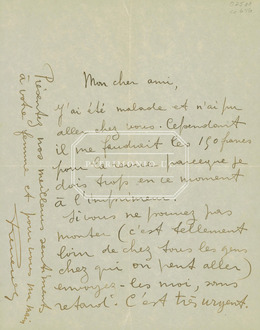 Mon cher ami,
J'ai été malade et n'ai pu
aller chez vous. Cependant
il me faudrait les 150 francs
pour la revue parce que je
dois trop en ce moment
à l'imprimeur.
Si vous ne pouvez pas
monter (c'est tellement
loin de chez tous les gens
chez qui on peut aller)
envoyez-les moi, sans
retard. C'est très urgent.
Présentez nos meilleurs sentiments
à votre femme et pour vous ma main